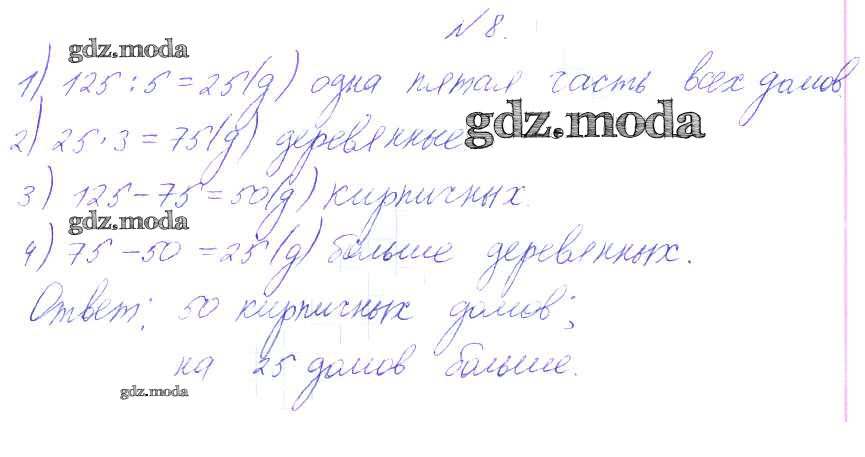 № 8.
gdz.moda
1) 125 : 5 = 25(д) одна пятая часть всех домов.
2) 25 · 3 = 75(д) деревянные
gdz.moda
3) 125 - 75 = 50(д) кирпичных.
gdz.moda
4) 75 - 50 = 25(д) больше деревянных.
Ответ: 50 кирпичных домов;
на 25 домов больше.
gdz.moda